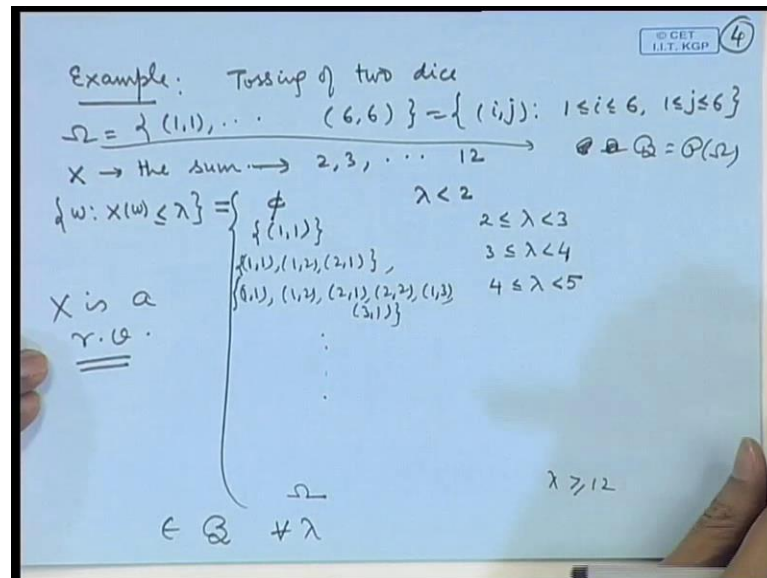 © CET
I.I.T. KGP
4
Example: Tossing of two dice
Ω = { (1,1), ... (6,6) } = { (i,j) : 1 ≤ i ≤ 6, 1 ≤ j ≤ 6 }
X → the sum → 2, 3, ... 12 B = P(Ω)
{ω: X(ω) ≤ λ} = { φ λ < 2
{(1,1)} 2 ≤ λ < 3
{(1,1), (1,2), (2,1)}, 3 ≤ λ < 4
{(1,1), (1,2), (2,1), (2,2), (1,3), 4 ≤ λ < 5
(3,1)}
X is a
r.v.
⋮
Ω λ ≥ 12
∈ B ∀ λ